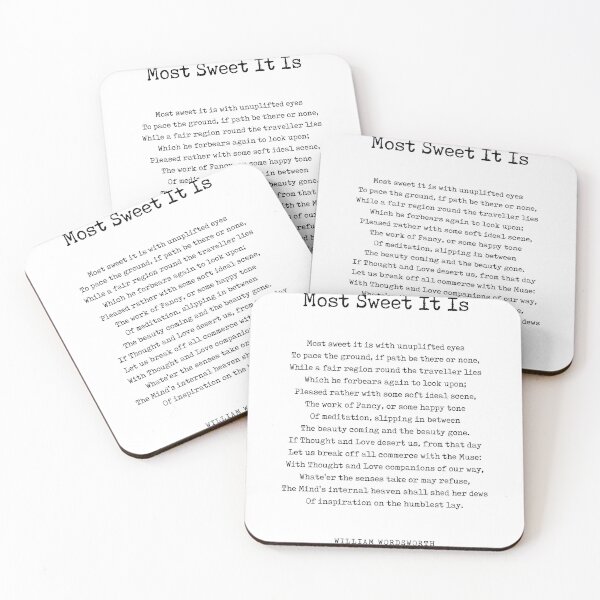 Most Sweet It Is
Most sweet it is with unuplifted eyes
To pace the ground, if path be there or none,
While a fair region round the traveller lies
Which he forbears again to look upon;
Pleased rather with some soft ideal scene,
The work of Fancy, or some happy tone
Of slipping in between
beauty gone.
from that
Most Sweet It Is
Most sweet it is with unuplifted eyes
To pace the ground, if path be there or none,
While a fair region round the traveller lies
Which he forbears again to look upon;
Pleased rather with some soft ideal scene,
The work of Fancy, or some happy tone
Of meditation, slipping in between
The beauty coming and the beauty gone.
If Thought and Love desert us, from that day
Let us break off all commerce with the Muse:
With Thought and Love companions of our way,
or may refuse,
shed her dews
Most Sweet It Is
Most sweet it is with unuplifted eyes
To pace the ground, if path be there or none,
While a fair region round the traveller lies
Which he forbears again to look upon;
Pleased rather with some soft ideal scene,
The work of Fancy, or some happy tone
Of meditation, slipping in between
The beauty coming and the beauty gone.
If Thought and Love desert us, from that day
Let us break off all commerce with
With Thought and Love companions
Whate'er the senses take or
The Mind's internal heaven
Of inspiration on the
WILLIAM
Most Sweet It Is
Most sweet it is with unuplifted eyes
To pace the ground, if path be there or none,
While a fair region round the traveller lies
Which he forbears again to look upon;
Pleased rather with some soft ideal scene,
The work of Fancy, or some happy tone
Of meditation, slipping in between
The beauty coming and the beauty gone.
If Thought and Love desert us, from that day
Let us break off all commerce with the Muse:
With Thought and Love companions of our way,
Whate'er the senses take or may refuse,
The Mind's internal heaven shall shed her dews
Of inspiration on the humblest lay.
WILLIAM WORDSWORTH